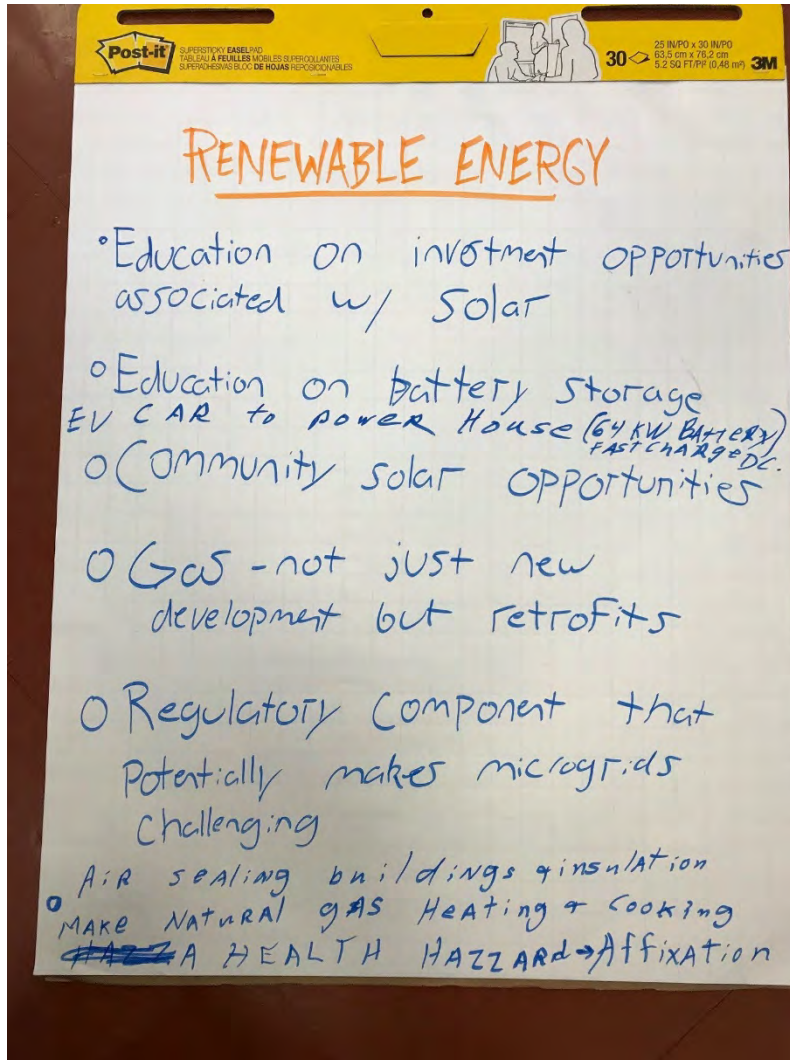 Post-it
SUPERSTICKY EASEL PAD
TABLEAU À FEUILLES MOBILES SUPERCOLLANTES
SUPERADHESIVAS BLOC DE HOJAS REPOSICIONABLES
30
25 IN/PO x 30 IN/PO
63,5 cm x 76,2 cm
5.2 SQ FT/PI² (0,48 m²)
3M
RENEWABLE ENERGY
• Education on invetment opportunities
associated w/ solar
o Education on battery storage
EV CAR to poweR House (64 KW BAtteRy)
FASt ChARge DC.
o Community solar opportunities
o Gas - not just new
development but retrofits
o Regulatory component that
potentially makes microgrids
challenging
AiR seAling buildings & insulAtion
o MAKe NAtuRAl gAS HeAting & Cooking
A HEALTH HAZZARd → AffixAtion